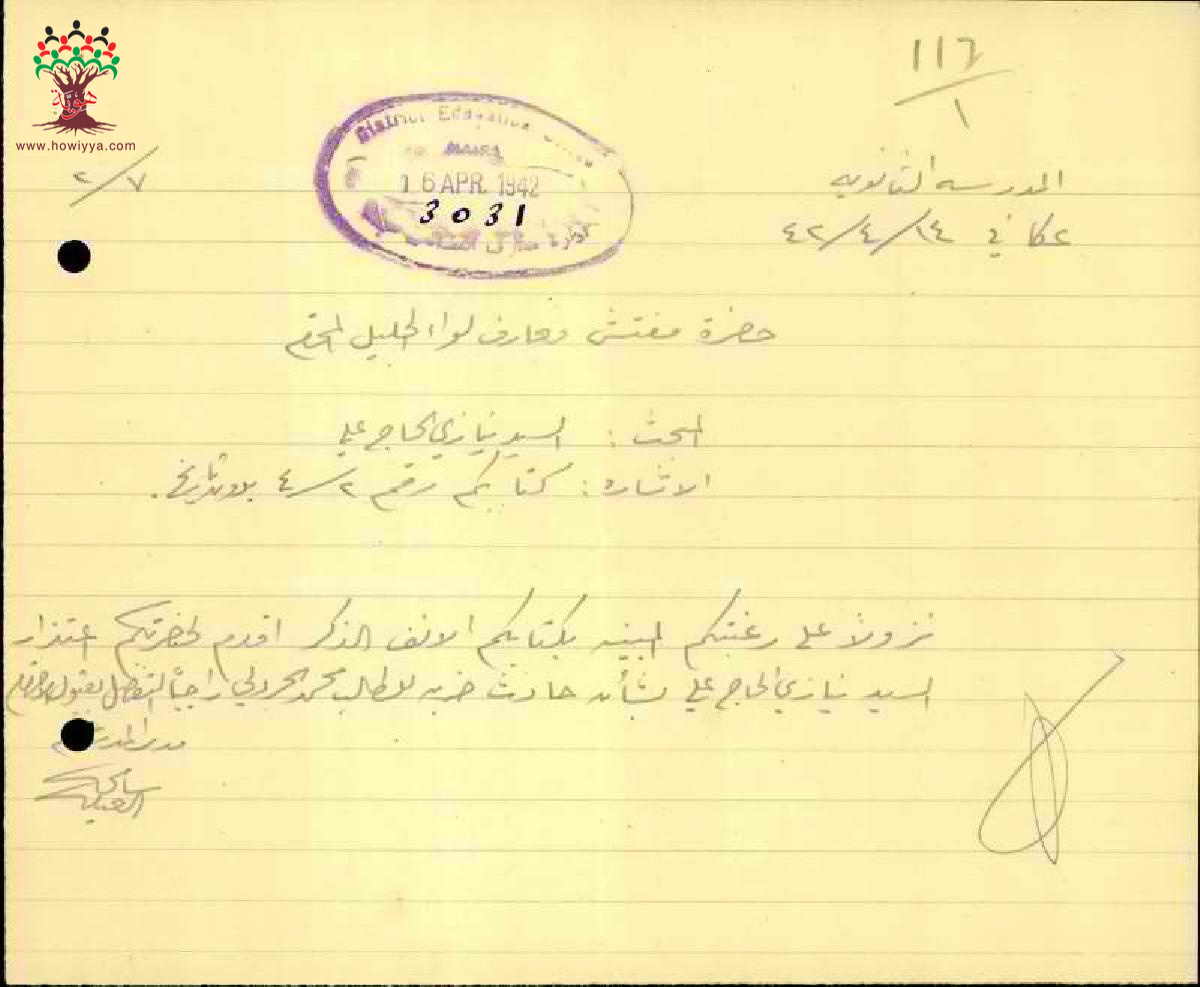 ١١٦/١
هوية
www.howiyya.com
District Education Office
16 APR. 1942
3031
٢/٧
المدرسه الثانويه
عكا في ١٤/٤/٤٢
حضرة مفتش معارف لواء الجليل المحترم
المبحث : السيد نيازي الحاج علي
الاشاره : كتابكم رقم ٤/٢ بدون تاريخ .
نزولاً على رغبتكم المبينه بكتابكم الانف الذكر اقدم لحضرتكم اعتذار
السيد نيازي الحاج علي بشأن حادث ضربه للطالب محمد راجياً التفضل بقبول
مدير المدرسه